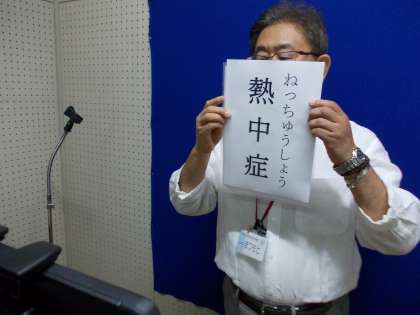 ねっちゅうしょう
熱中症